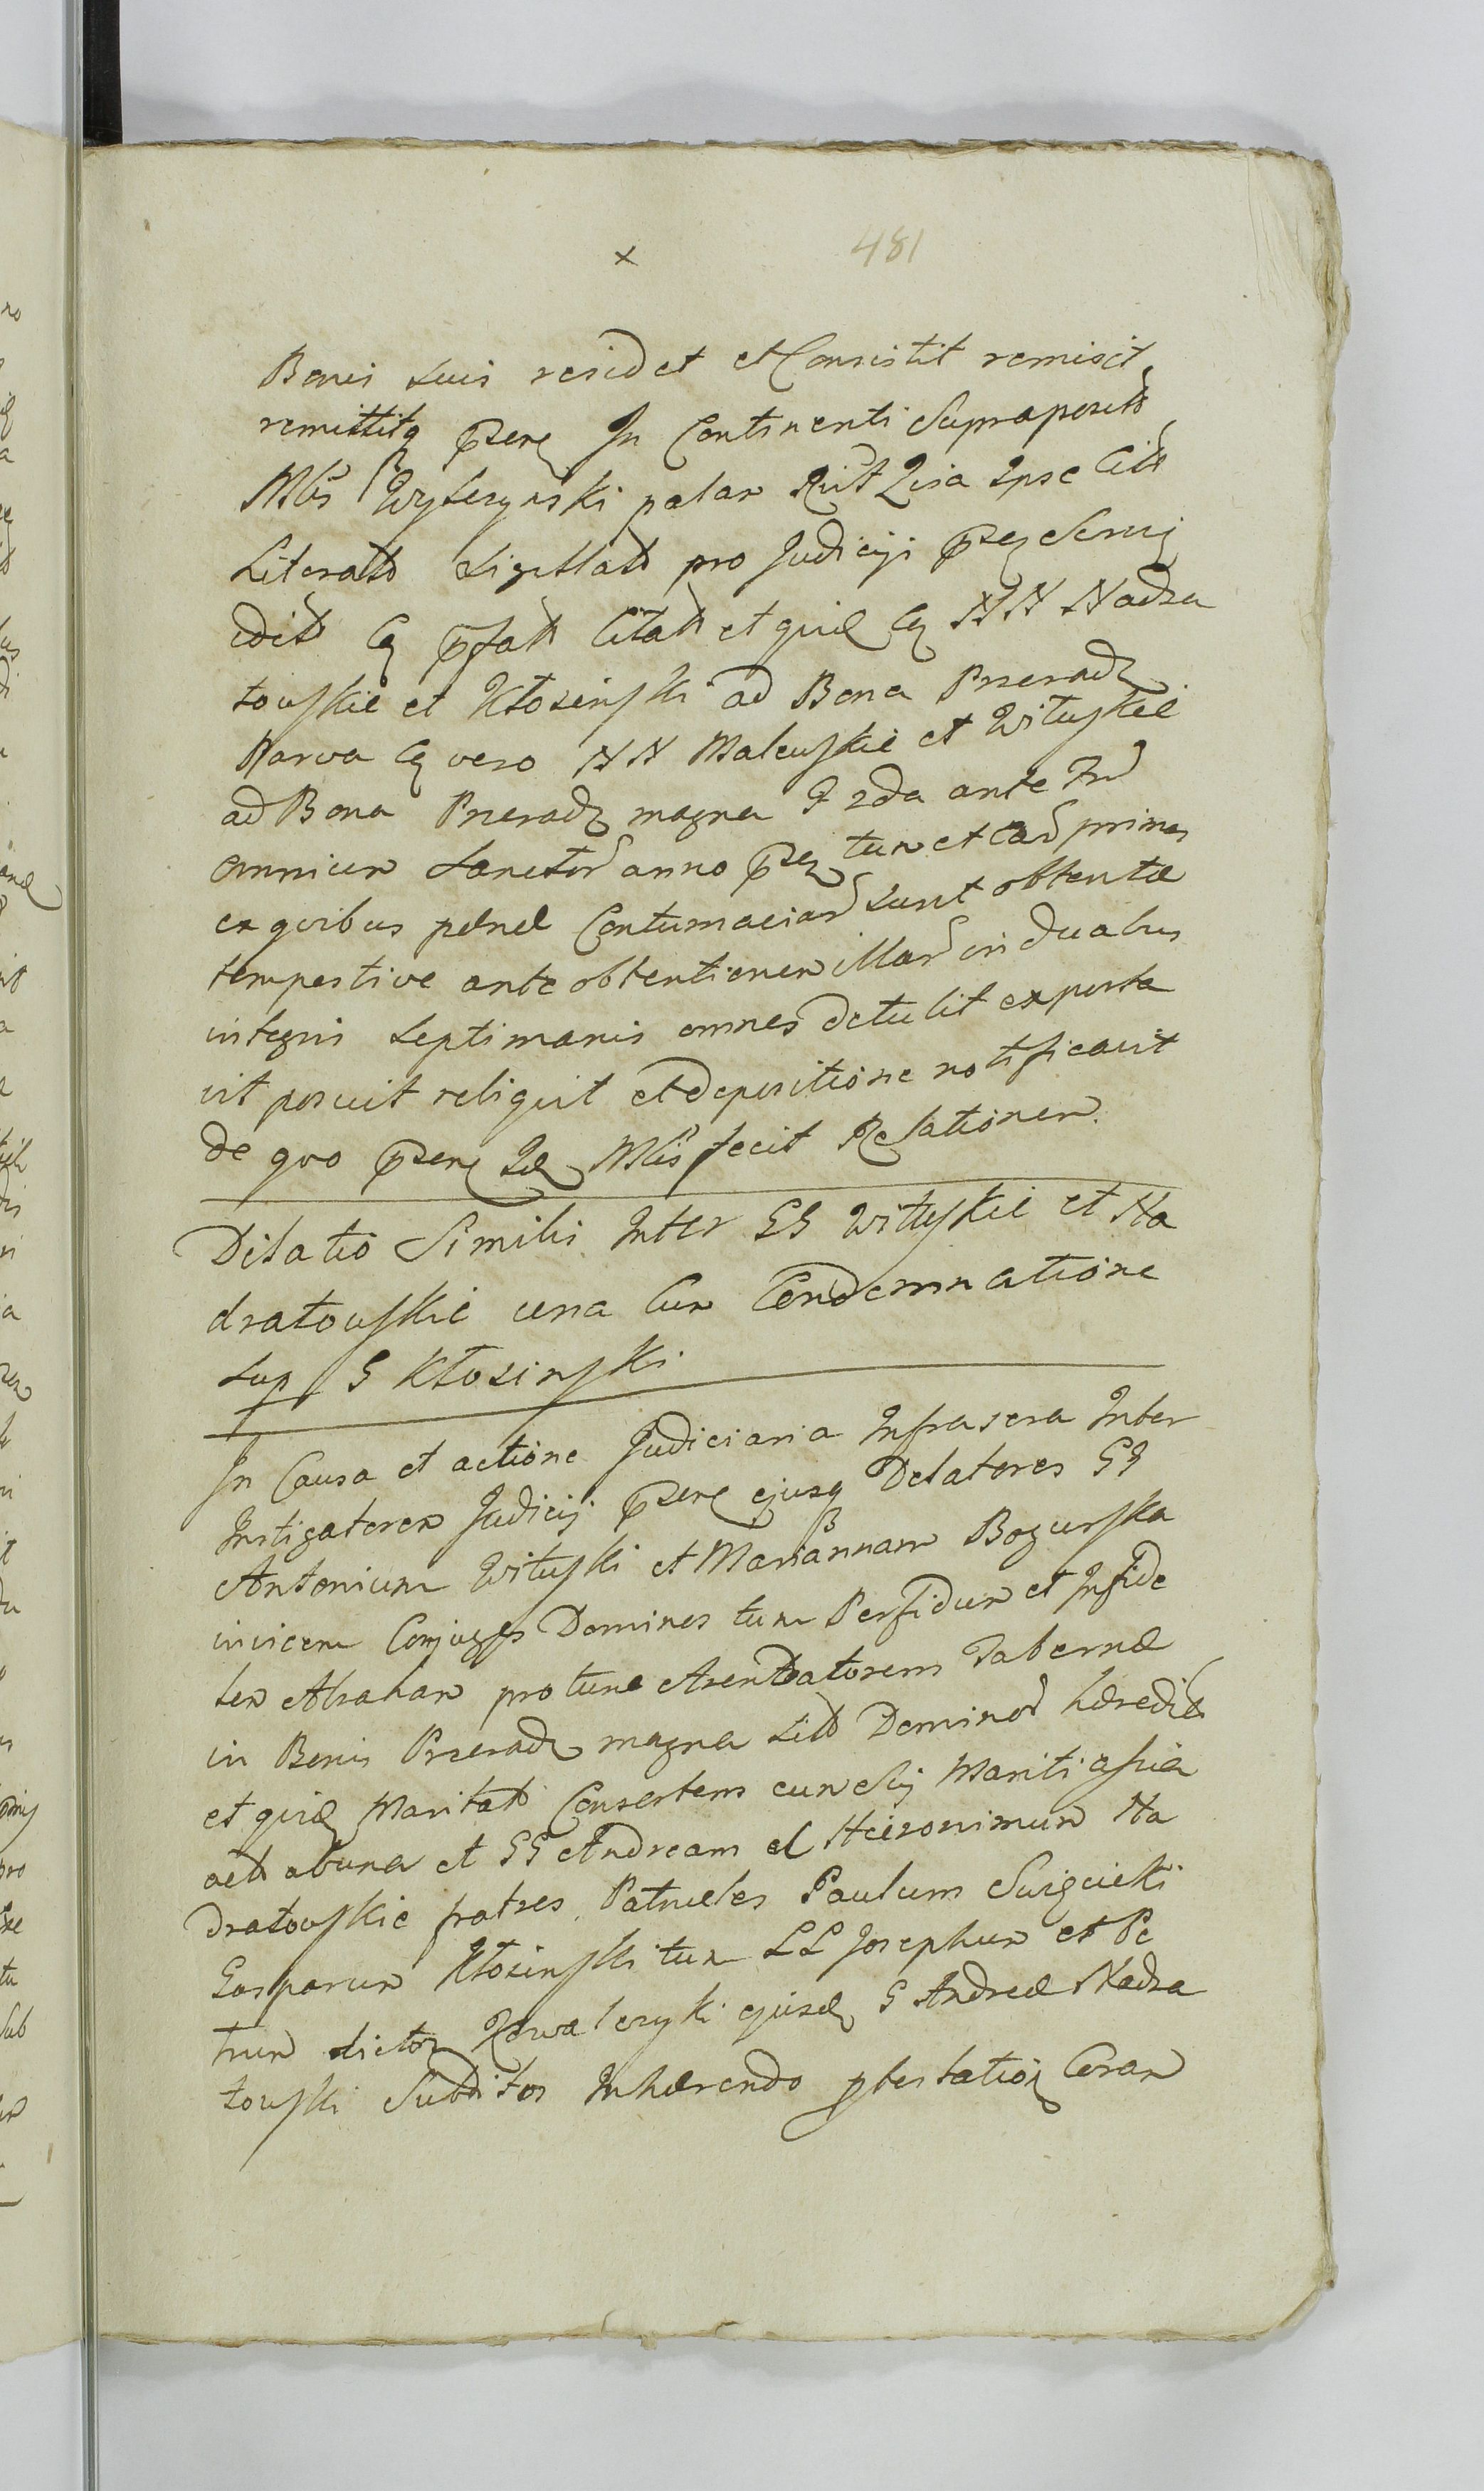 x 481
Bonis suis residet et Consistit remisit
remittitq pser In Continenti Supraposit
Mlis Wyleszynski palam Ipse Cit
Literat sigillat pro Judicij pse
edit Cq pfat Citat et quid Cq NN Nadra
touskie et Kłosinski ad Bona Przerad
Parva Cq vero NN Maleuskie et Wituskie
ad Bona Przerad magna ante
omnium Sanctor anno pse tum et ear primes
ex quibus penæ Contumaciar sunt obtentæ
tempestive ante obtentionem illar in duabus
integris septimanis omnes detulit exporta
vit posuit reliquit et depositione notificavit
de quo pser Mlis fecit Relationem.
Dilatio Similis Inter GG Wituskie et Na
dratouskie una Cum Condemnatione
sup G Kłosinski
In Causa et actione Judiciaria Infrascra Inter
Instigatorem Judicij pser ejusq Delatores GG
Antonium Wituski et Mariannam Boguska
invicem Conjuges Dominos tum Perfidum et Infide
lem Abraham pro tunc Arendatorem Tabernæ
in Bonis Przerad magna sit Dominor hæredit
et quid Maritat Consortem cum sui Mariti assia
act abuna et GG Andream et Hieronimum Na
dratouskie fratres Patrueles Paulum Swięcicki
Gasparum Kłosinski tum LL Josephum et Pe
trum dictos Kowalczyki ejusd G Andreæ Nadra
touski Subditos Inhærendo ptestation Coram